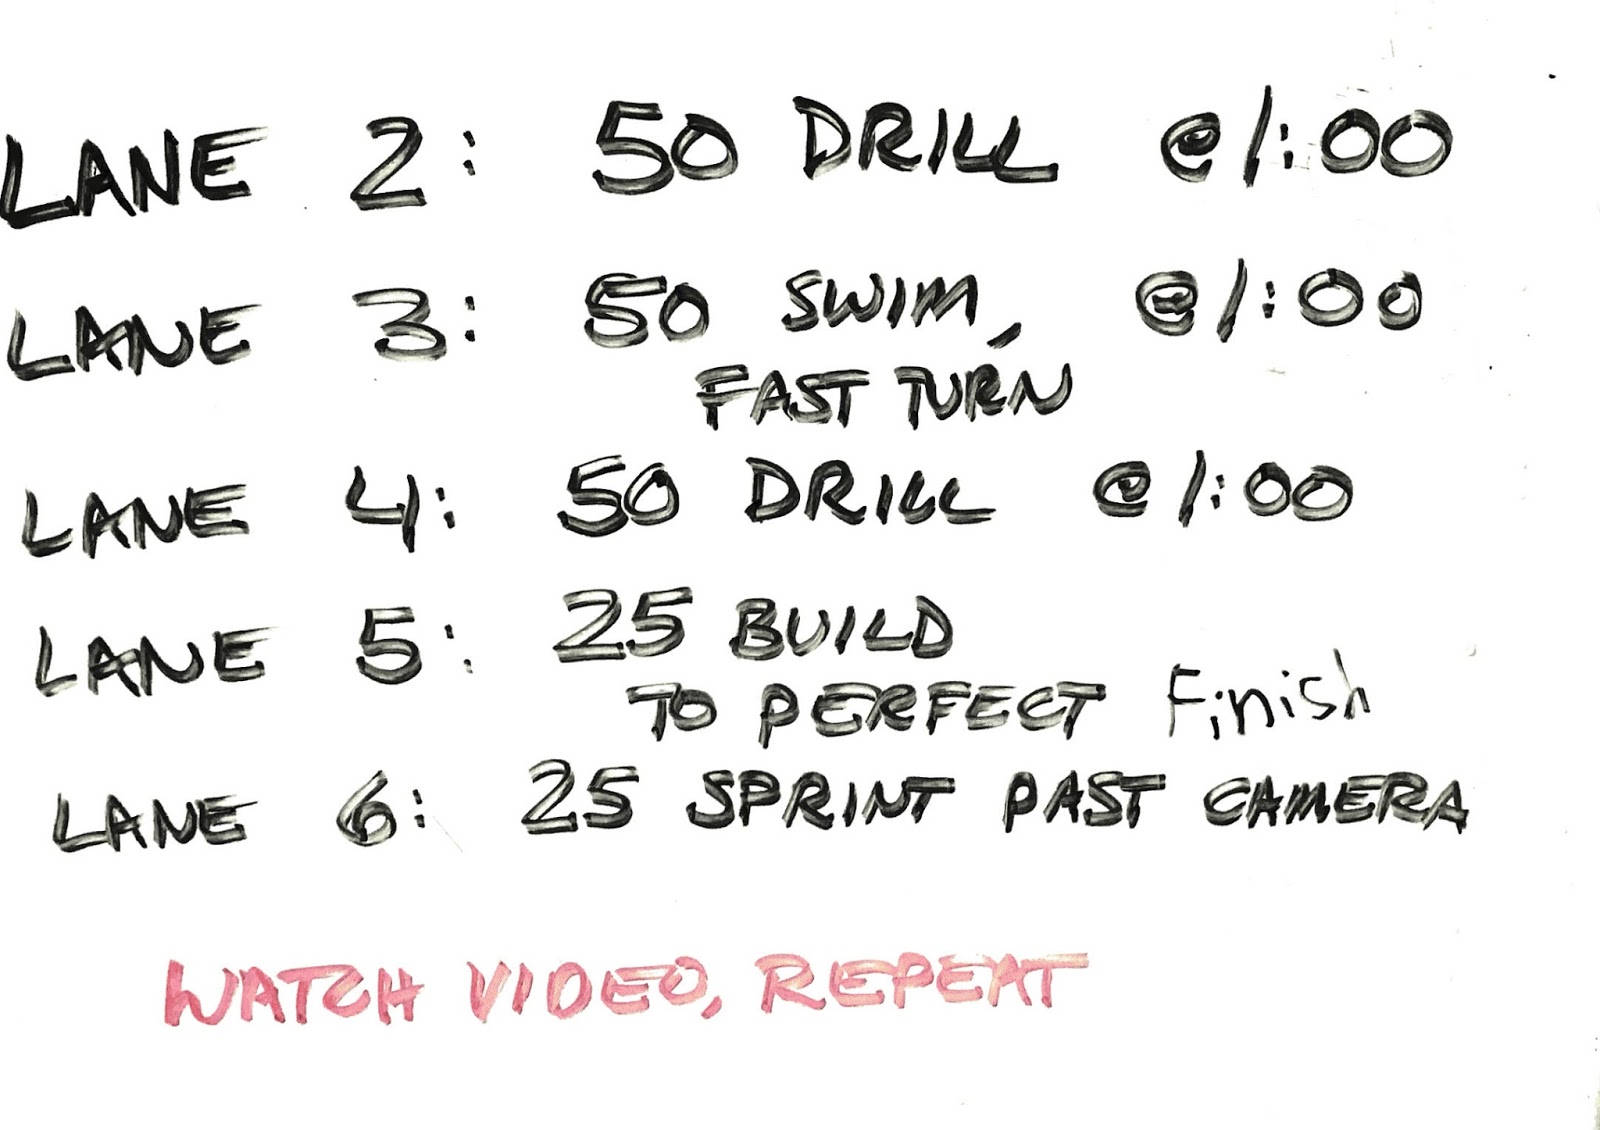 LANE 2: 50 DRILL @ 1:00
LANE 3: 50 SWIM, @ 1:00
FAST TURN
LANE 4: 50 DRILL @ 1:00
LANE 5: 25 BUILD
TO PERFECT Finish
LANE 6: 25 SPRINT PAST CAMERA
WATCH VIDEO, REPEAT